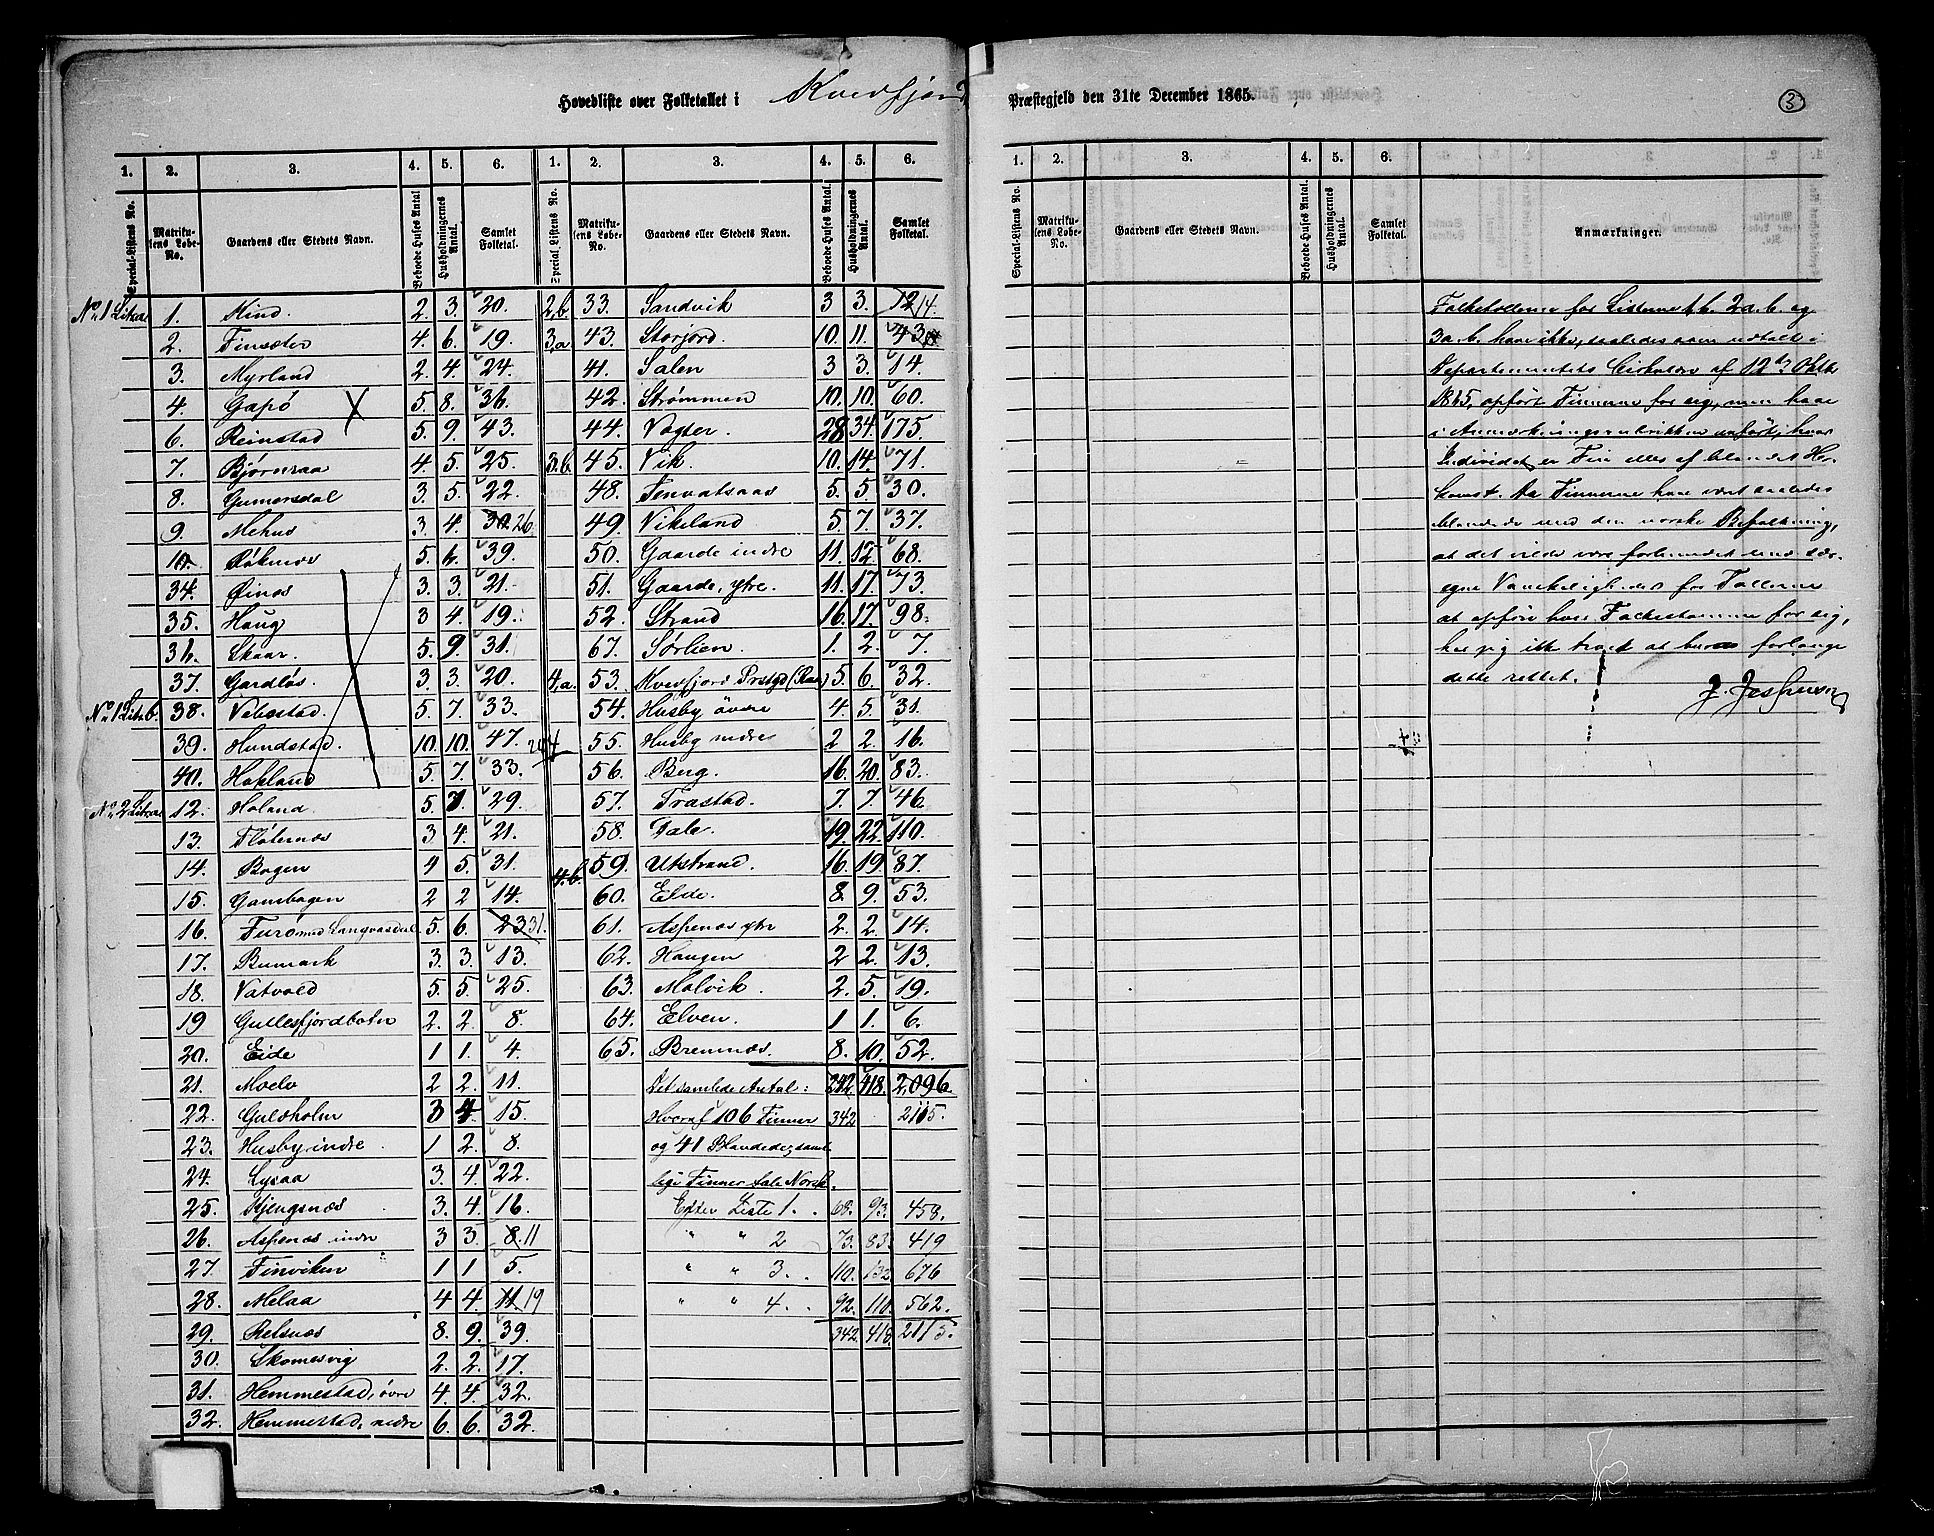 Hovedliste over Folketallet i Kvedfjord Præstegjeld den 31te December 1865.
3
1. 2. 3. 4. 5. 6. 1. 2. 3. 4. 5. 6.
Special-Listens No. Matrikulens Løbe-No. Gaardens eller Stedets Navn. Beboede Huses Antal Husholdningernes Antal. Samlet Folketal. Special Listens No. Matrikulens Løbe-No. Gaardens eller Stedets Navn. Beboede Huses Antal. Husholdningernes Antal. Samlet Folketal.
No. 1 Litra a 1. Mind. 2. 3. 20.
2. Finsæter 4. 6. 19.
3. Myrland 2. 4. 24.
4. Gapø 5. 8. 36.
6. Reinstad 5. 9. 43.
7. Bjørnraa 4. 5. 25.
8. Gumersdal 3. 5. 22.
9. Mehus 3. 4. 30 26
10. Røknes 5. 6. 39.
34. Øinæs 3. 3. 21.
35. Haug 3 4. 19.
36. Skaar. 5. 9. 31.
37. Gardløs 3. 3. 20.
No. 1 Lit. b. 38. Vebostad. 5. 7. 33.
39. Hundstad. 10. 10. 47. 244
40. Hokland 5. 7. 33.
No. 2 Litra a 12. Holand 5. 7. 29.
13. Fløtenæs 3 4. 21.
14. Bogen 4 5. 31.
15. Gausbogen 2 2 14.
16. Furø med Langvasdal 5. 6. 23 31.
17. Bumark 3. 3. 13.
18. Vatvold 5. 5. 25.
19 Gullesfjordbotn 2. 2. 8.
20. Eide 1 1. 4.
21. Moelv 2 2. 11.
22. Guldholm 3 4. 15.
23. Husby indre 1 2. 8.
24. Lysaa 3. 4. 22.
25. Kjengsnæs 3. 4. 16.
26. Aspenæs indre 3 3. 8. 11
27. Finviken 1 1 5.
28. Melaa 4 4. 11 19
29. Relsnæs 8. 9. 39.
30. Skomesvig 2. 2. 17.
31. Hemmestad, øvre 4. 4. 32.
32. Hemmestad, nedre 6. 6. 32.
2,b. 33. Sandvik 3 3. 12 14.
3,a 43. Storjord. 10. 11. 43
41. Salen 3 3. 14.
42. Strømmen 10. 10. 60.
44. Vogter. 28 34. 175.
3.b. 45. Vik. 10. 14. 71.
48. Fenvatsaas 5. 5. 30.
49. Vikeland 5. 7. 37.
50. Gaarde indre 11. 12. 68.
51. Gaarde, ytre. 11. 17. 73.
52. Strand 16. 17. 98.
67. Sørlien. 1. 2. 7.
4,a. 53. Kvedfjord Prstgd 5. 6. 32.
54. Husby øvre 4. 5. 31.
55. Husby nedre 2 2. 16.
56. Berg. 16. 20. 83.
57. Trastad. 7. 7. 46
58. Dale. 19. 22. 110.
4.b. 59. Utstrand. 16. 19 87.
60. Elde. 8. 9. 53.
61. Aspenæs ytre 2. 2. 14.
62. Haugen 2 2. 13.
63. Molvik. 2. 5. 19.
64. Elven. 1 1. 6.
65. Bremnæs. 8. 10. 52.
Det samlede Antal: 342. 418. 2,096.
Hvoraf 106 Finner 342 2115.
og 41 Blandede; samt
lige Finner tale Norsk.
Efter Liste 1. 68. 93. 458.
" " 2 73. 83. 419
" " 3. 110. 132 676
" " 4. 92. 110. 562.
342. 418. 2115.
1. 2. 3. 4. 5. 6.
Special-Listens No. Matrikulens Løbe-No. Gaardens eller Stedets Navn. Beboede Huses Antal. Husholdningernes Antal. Samlet Folketal. Anmærkninger.
for Listerne 2 a. b. og
3 a. b. have ikke, saaledes som udtalt i
Departementets Cirkulære af 12te Oktbr
1865, opført Finnerne for sig, men have
i Anmærkningsrubrikken anført, hvor
Individet er Fin eller af blandet Her-
komst. Da Finnerne bare været saaledes
blandede med den norske Befolkning,
at det vilde være forbundet med sær-
egne Vanskeligheder for Tællerne
at opføre hver Folkestamme for sig,
har jeg ikke troet at burde forlange
dette rettet.
J. Jespersen